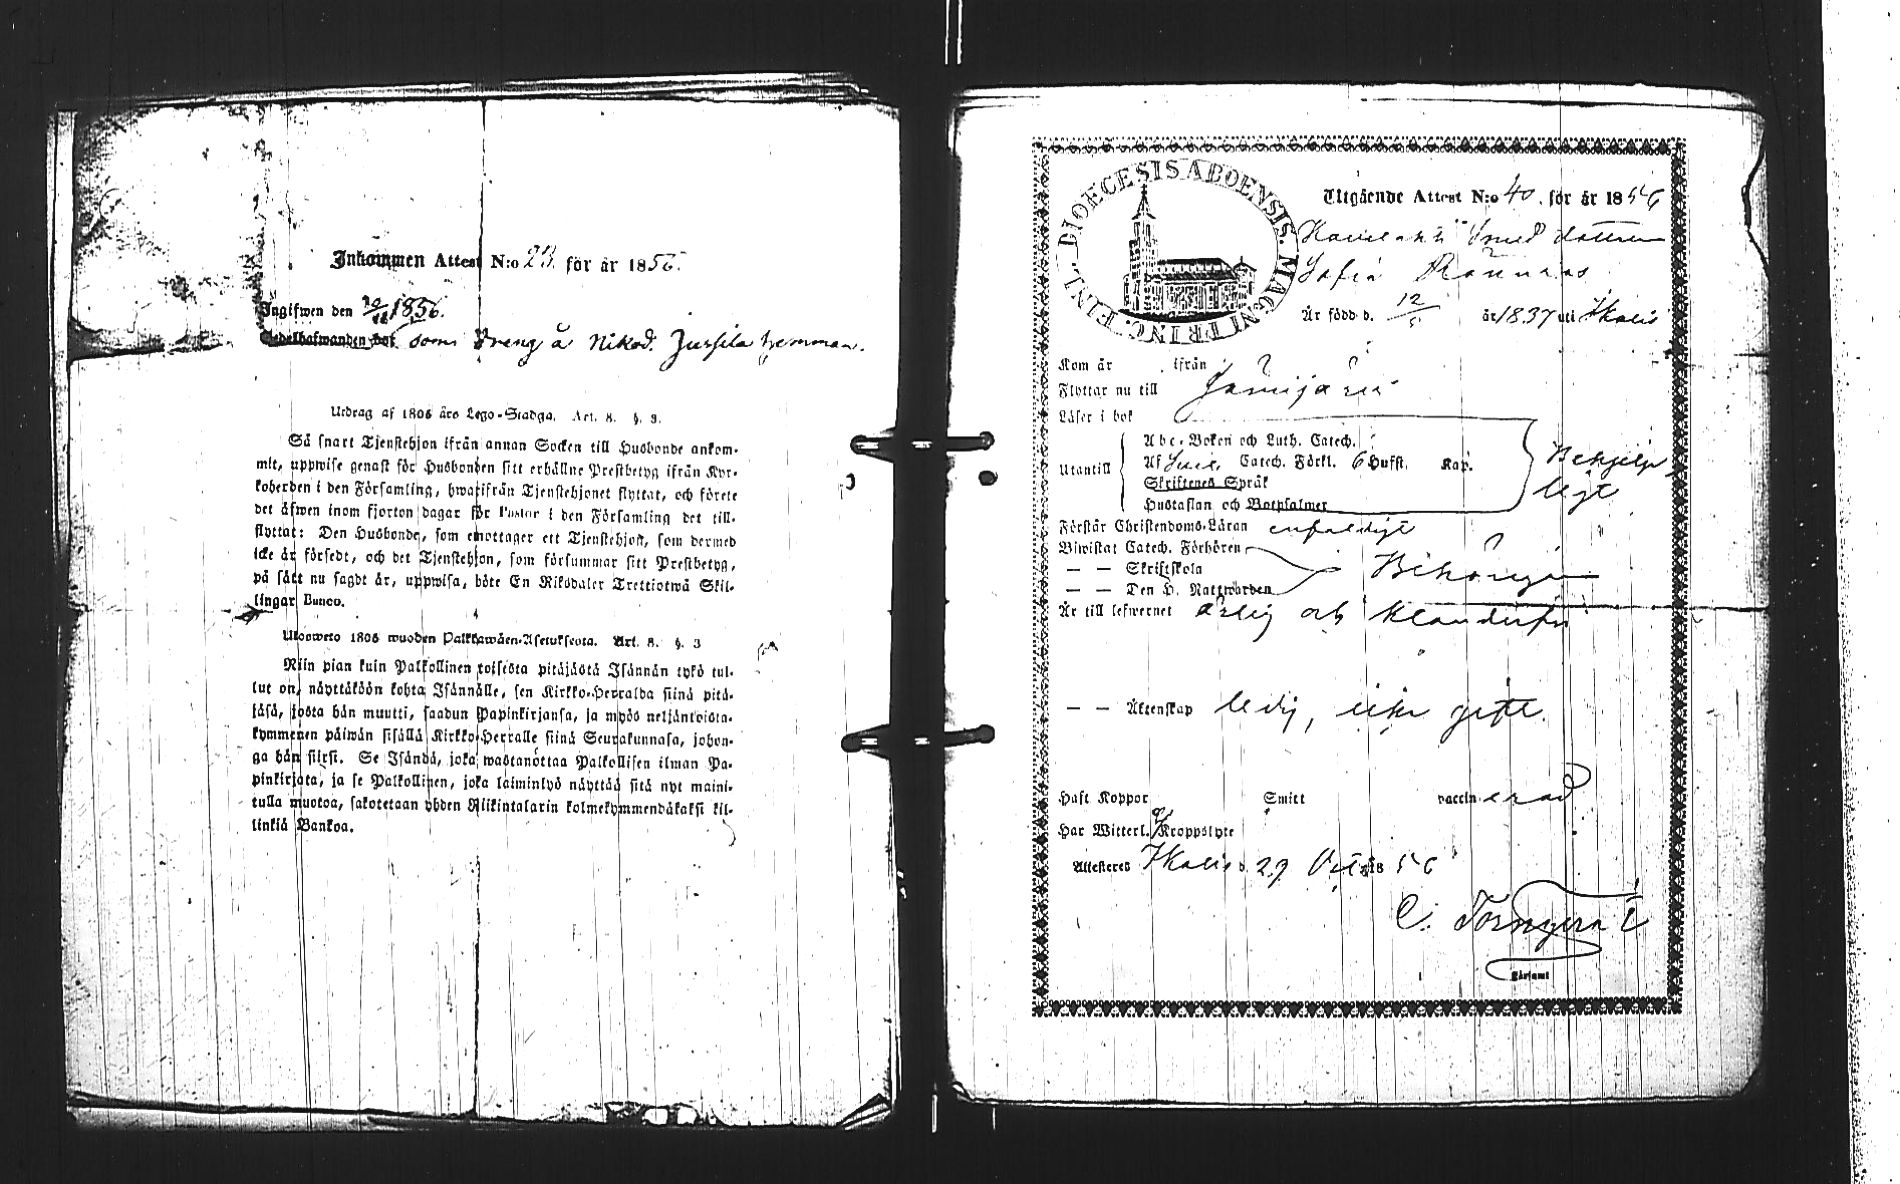 Inkommen Attest N:o 23. för år 1856.
Ingifwen den 1856.
som dreng å Nikod. Jussila hemman.
Utdrag af 1805 års Lego-Stadga. Art. 8. §. 3.
Så snart Tjenstehjon ifrån annan Socken till Husbonde ankom-
mit, uppwise genast för Husbonden sitt erhållne Prestbetyg ifrån Kyr-
koherden i den Församling, hwarifrån Tjenstehjonet flyttat, och förete
det äfwen inom fjorton dagar för Pastor i den Församling det till-
flyttat: Den Husbonde, som emottager ett Tjenstehjon, som dermed
icke är försedt, och det Tjenstehjon, som försummar sitt Prestbetyg,
på sätt nu sagdt är, uppwisa, böte En Riksdaler Trettiotwå Skil-
lingar Banco.
Ulosweto 1805 wuoden Palkkawäen-Asetuksesta. Art. 8. §. 3
Niin pian kuin Palkollinen toisesta pitäjästä Isännän tykö tul-
lut on, näyttäköön kohta Isännälle, sen Kirkko-Herralda siinä pitä-
jäsä, josta hän muutti, saadun Papinkirjansa, ja myös neljäntoista-
kymmenen päiwän sisällä Kirkko-Herralle siinä Seurakunnasa, johon-
ga hän siirsi. Se Isändä, joka wastanottaa Palkollisen ilman Pa-
pinkirjata, ja se Palkollinen, joka laiminlyö näyttää sitä nyt maini-
tulla muotoa, sakotetaan yhden Riikintalarin kolmekymmendäkaksi kil-
linkiä Bankoa.
DIOECESIS ABOENSIS. MAGNI PRINC. FINL.
Utgående Attest N:o 40. för år 1856
Smed dottern
Sofia
Är född d. 12/5 år 1837 uti Ikalis
Kom år ifrån
Flyttar nu till Jämijärvi
Läser i bok
Utantill
Abc-Boken och Luth. Catech.
Af Catech. Förkl. 6 Hufst. Kap.
Skriftenes Språk
Hustaflan och Botpsalmer
Behjelp-
ligt
Förstår Christendoms-Läran enfaldigt
Biwistat Catech. Förhören
— — Skriftskola
— — Den H. Nattwarden
Behörigen
Är till lefwernet ärlig och klanderfri
— — Äktenskap ledig, icke gift.
Haft Koppor Smitt vaccinerad
Har Witterl. Kroppslyte
Attesteras Ikalis d. 29 Oct. 1856